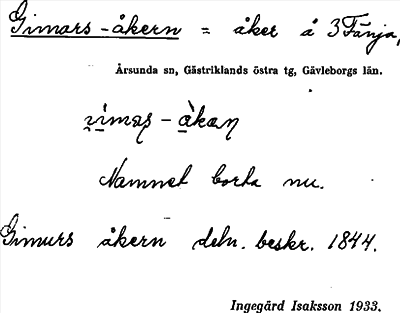 Gimars-åkern = åker å 3 Fänja,
Årsunda sn, Gästriklands östra tg, Gävleborgs län.
-åkaꞃ
Namnet borta nu.
Gimurs åkern deln. beskr. 1844.
Ingegärd Isaksson 1933.